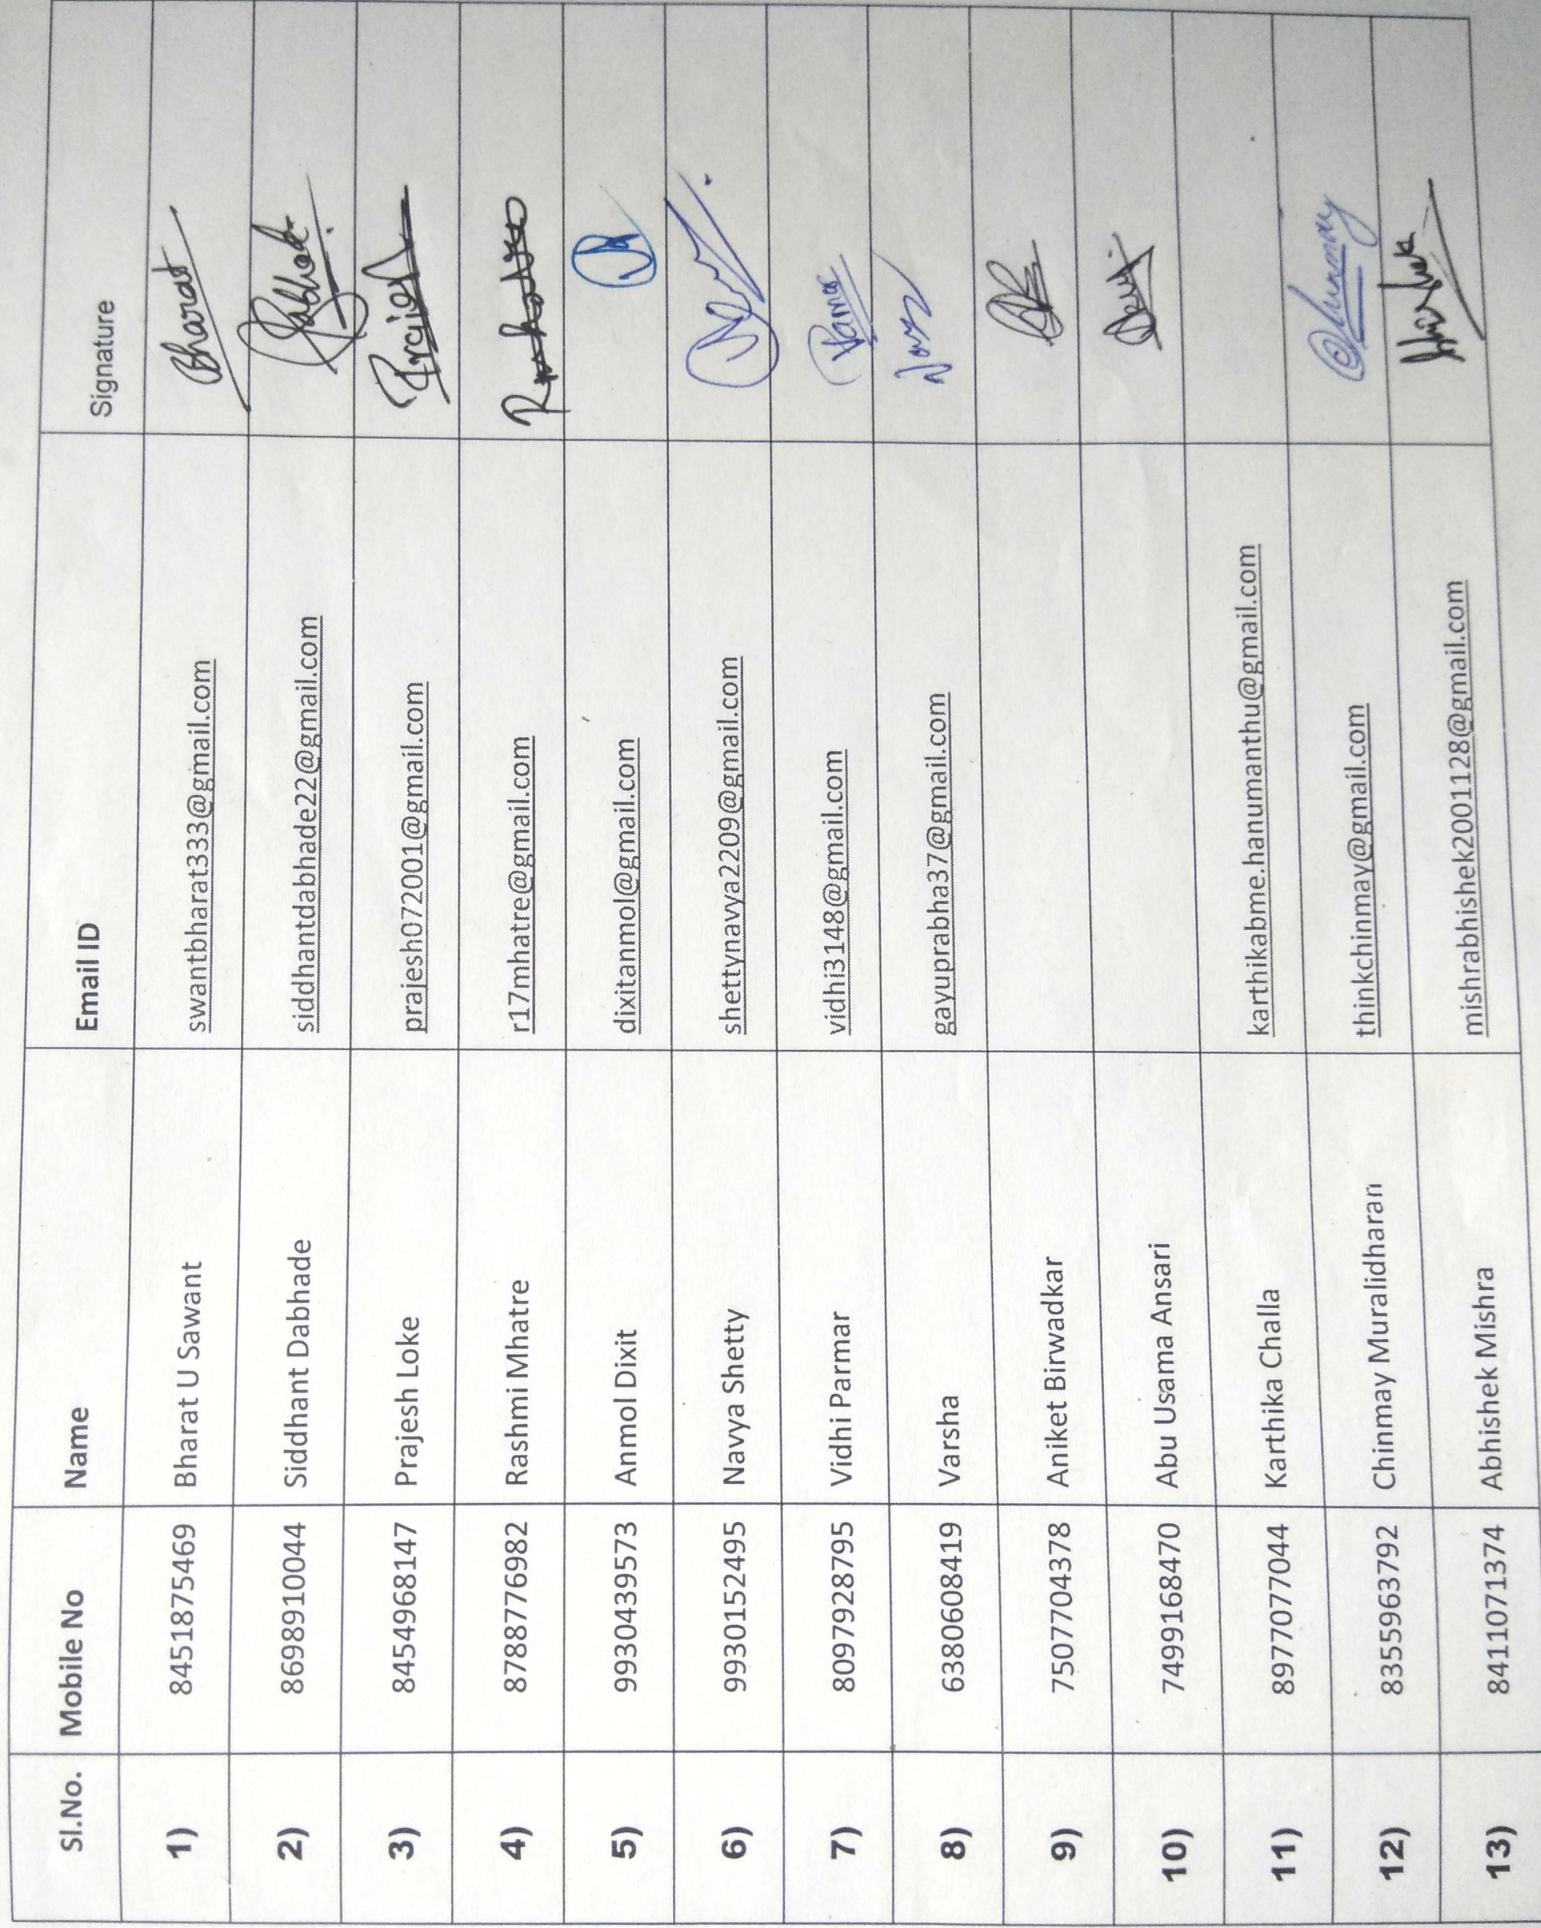 Sl.No. Mobile No Name Email ID Signature
1) 8451875469 Bharat U Sawant swantbharat333@gmail.com Bharat
2) 8698910044 Siddhant Dabhade siddhantdabhade22@gmail.com
3) 8454968147 Prajesh Loke prajesh072001@gmail.com
4) 8788776982 Rashmi Mhatre r17mhatre@gmail.com
5) 9930439573 Anmol Dixit dixitanmol@gmail.com
6) 9930152495 Navya Shetty shettynavya2209@gmail.com
7) 8097928795 Vidhi Parmar vidhi3148@gmail.com
8) 6380608419 Varsha gayuprabha37@gmail.com
9) 7507704378 Aniket Birwadkar
10) 7499168470 Abu Usama Ansari
11) 8977077044 Karthika Challa karthikabme.hanumanthu@gmail.com
12) 8355963792 Chinmay Muralidharan thinkchinmay@gmail.com Chinmay
13) 8411071374 Abhishek Mishra mishrabhishek2001128@gmail.com